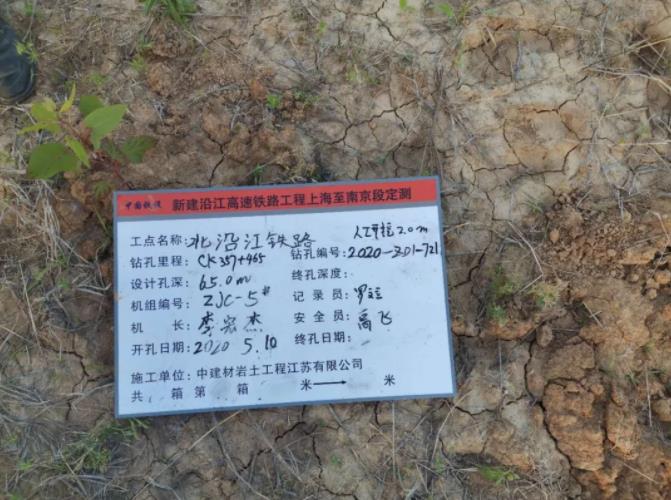 中国铁设 新建沿江高速铁路工程上海至南京段定测
工点名称: 北沿江铁路 人工开挖2.0m
钻孔里程: CK357+465 钻孔编号: 2020-ZJ01-721
设计孔深: 65.0m 终孔深度:
机组编号: ZJC-5# 记录员: 罗
机 长: 李宏杰 安全员: 高飞
开孔日期: 2020 5.10 终孔日期:
施工单位: 中建材岩土工程江苏有限公司
共 箱 第 箱 米→ 米